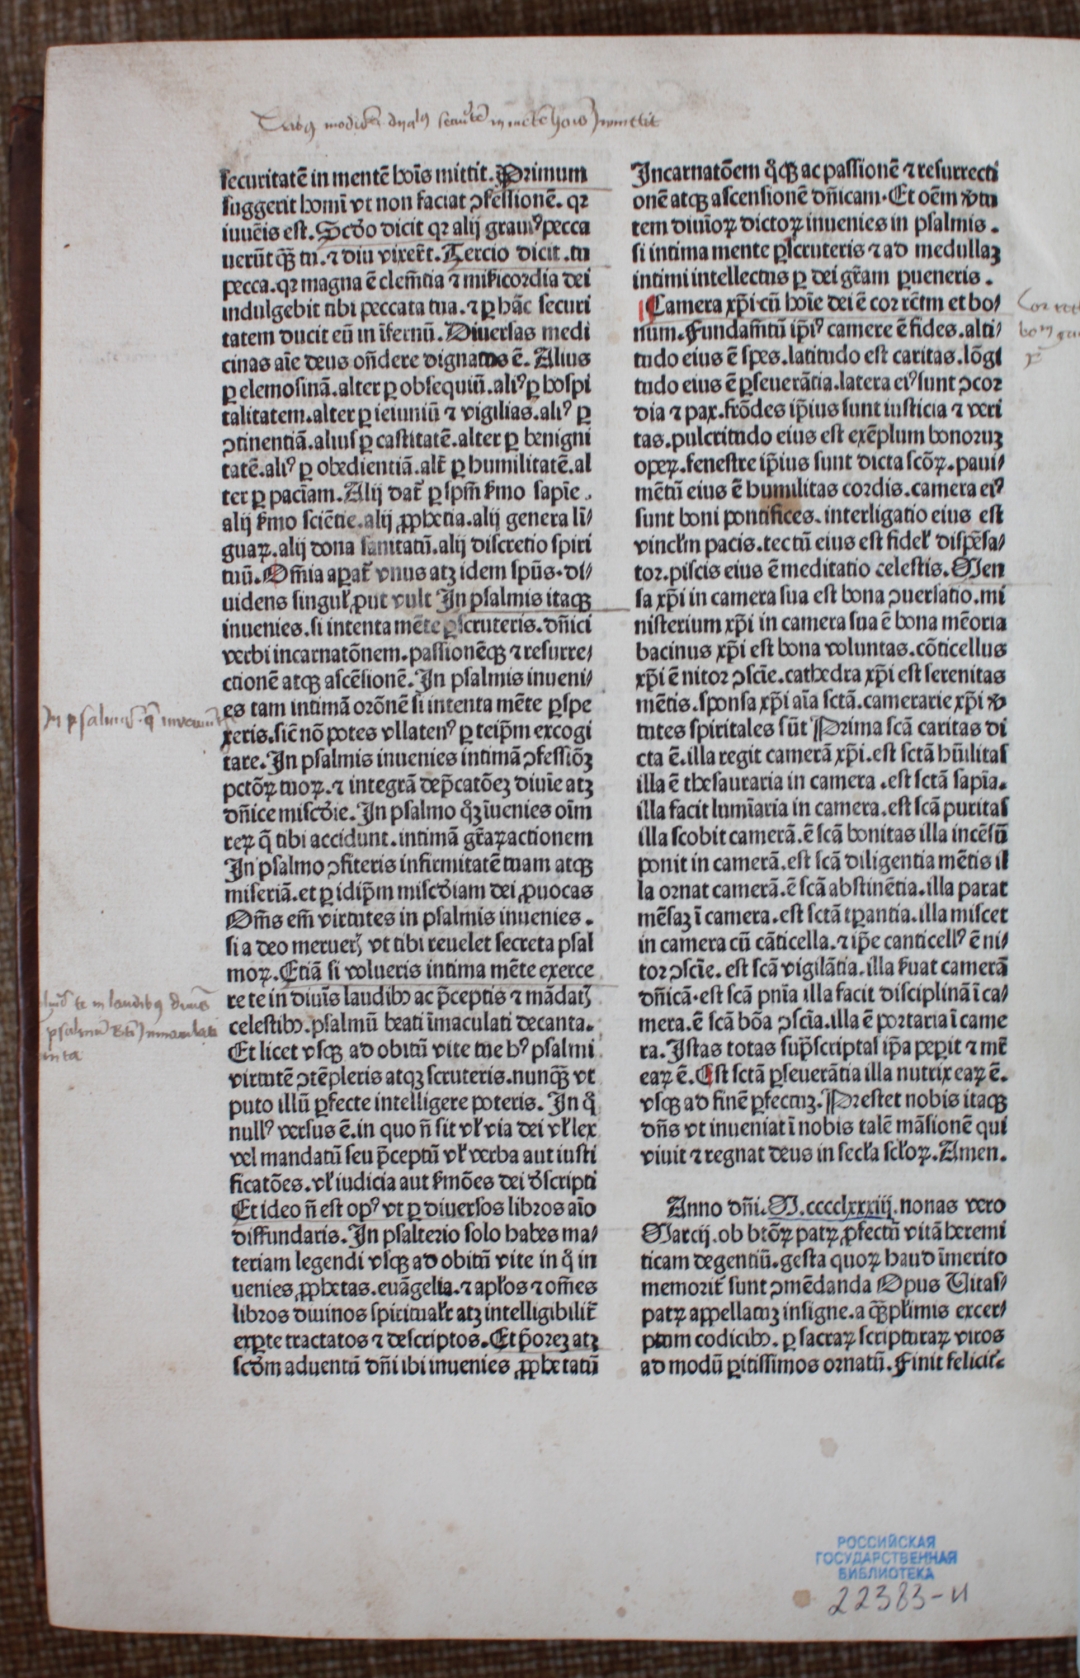 securitatē in mentē hoīs mittit. Primum
suggerit homī vt non faciat ↄfessionē. qꝛ
iuuēis est. Scd̄o dicit qꝛ alij grauiꝰ pecca
uerūt qꝫ̄ tu. ⁊ diu vixer̄t. Tercio dicit. tu
pecca. qꝛ magna ē clem̄tia ⁊ mīicordia dei
indulgebit tibi peccata tua. ⁊ ꝑ hāc securi
tatem ducit eū in īfernū. Diuersas medi
cinas aīe deus on̄dere dignatus ē. Alius
ꝑ elemosinā. alter ꝑ obsequiū. aliꝰ ꝑ hospi
talitatem. alter ꝑ ieiuniū ⁊ vigilias. aliꝰ ꝑ
ↄtinentiā. alius ꝑ castitatē. alter ꝑ benigni
tatē. aliꝰ ꝑ obedientiā. alt̄ ꝑ humilitatē. al
ter ꝑ paciam. Alij dat̄ ꝑ spm̄ ẜmo sapīe.
alij ẜmo sciētie. alij ꝓphetia. alij genera li⸗
guaꝝ. alij dona sanitatū. alij discretio spiri
tuū. Om̄ia apat̄ vnus atꝫ idem spūs. di⸗
uidens singul̄ ꝓut vult In psalmis itaqꝫ
inuenies. si intenta mēte ꝑscruteris. dn̄ici
verbi incarnatōnem. passionēqꝫ ⁊ resurre⸗
ctionē atqꝫ ascēsionē. In psalmis inueni⸗
es tam intimā orōnē si intenta mēte ꝑspe
xeris. sic̄ nō potes vllatenꝰ ꝑ teip̄m excogi
tare. In psalmis inuenies intimā ↄfessiōꝫ
pctōꝝ tuoꝝ. ⁊ integrā dep̄catōeꝫ diuīe atꝫ
dn̄ice misc̄die. In psalmo qꝫ̄ īuenies oīm
reꝝ q̄ tibi accidunt. intimā gr̄aꝝ actionem
In psalmo ↄfiteris infirmitatē tuam atqꝫ
miseriā. et ꝑ idip̄m misc̄diam dei ꝓuocas
Om̄s em̄ virtutes in psalmis inuenies.
si a deo merueꝛꝭ vt tibi reuelet secreta psal
moꝝ. Etiā si volueris intima mēte exerce
re te in diuīs laudibꝰ ac p̄ceptis ⁊ mādatꝭ
celestibꝰ. psalmū beati īmaculati decanta.
Et licet vsqꝫ ad obitū vite tue hꝰ psalmi
virtutē ↄtēpleris atqꝫ scruteris. nunqꝫ̄ vt
puto illū ꝑfecte intelligere poteris. In q̊
nullꝰ versus ē. in quo n̄ sit vł via dei vł lex
vel mandatū seu p̄ceptū vł verba aut iusti
ficatōes. vł iudicia aut ẜmōes dei d̄scripti
Et ideo n̄ est opꝰ vt ꝑ diuersos libros aīo
diffundaris. In psalterio solo habes ma⸗
teriam legendi vsqꝫ ad obitū vite in q̊ in
uenies ꝓphetas. euāgelia. ⁊ apłos ⁊ om̄es
libros diuinos spiritualr̄ atꝫ intelligibilit̄
exꝑte tractatos ⁊ descriptos. Et p̄oreꝫ atꝫ
scd̄m aduentū dn̄i ibi inuenies ꝓphetatū
Incarnatōem q̊qꝫ ac passionē ⁊ resurrecti
onē atqꝫ ascensionē dn̄icam. Et oēm v̄tu
tem diuīoꝝ dictoꝝ inuenies in psalmis.
si intima mente ꝑscruteris ⁊ ad medullaꝫ
intimi intellectus ꝑ dei gr̄am ꝑueneris.
Camera xp̄i cū hoīe dei ē cor rēt̄m et bo⸗
num. Fundam̄tū ip̄iꝰ camere ē fides. alti⸗
tudo eius ē spes. latitudo est caritas. lōgi
tudo eius ē ꝑseuerātia. latera eiꝰ sunt ↄcor
dia ⁊ pax. frōdes ip̄ius sunt iusticia ⁊ veri
tas. pulcritudo eius est exēplum bonoruꝫ
opeꝝ. fenestre ip̄ius sunt dicta scōꝝ. paui⸗
mētū eius ē humilitas cordis. camera eiꝰ
sunt boni pontifices. interligatio eius est
vincłm pacis. tectū eius est fidel̄ dispēsa⸗
tor. piscis eius ē meditatio celestis. Men
sa xp̄i in camera sua est bona ↄuersatio. mi
nisterium xp̄i in camera sua ē bona mēoria
bacinus xp̄i est bona voluntas. cōticellus
xp̄i ē nitor ↄscīe. cathedra xp̄i est serenitas
mētis. sponsa xp̄i aīa sctā. camerarie xp̄i v̄
tutes spiritales sūt Prima scā caritas di
cta ē. illa regit camerā xp̄i. est sctā hūilitas
illa ē thesauraria in camera. est sctā sapīa.
illa facit lumīaria in camera. est scā puritas
illa scobit camerā. ē scā bonitas illa incēsū
ponit in camerā. est scā diligentia mētis il
la ornat camerā. ē scā abstinētia. illa parat
mēsaꝫ ī camera. est sctā tꝑantia. illa miscet
in camera cū cāticella. ⁊ ip̄e canticellꝰ ē ni⸗
tor ↄscīe. est scā vigilātia. illa ẜuat camerā
dn̄icā. est scā pnīa illa facit disciplinā ī ca⸗
mera. ē scā bōa ↄscīa. illa ē portaria ī came
ra. Istas totas sup̄scriptas ip̄a peꝑit ⁊ mr̄
eaꝝ ē. Est sctā ꝑseuerātia illa nutrix eaꝝ ē.
vsqꝫ ad finē ꝑfectuꝫ. Prestet nobis itaqꝫ
dn̄s vt inueniat ī nobis talē māsionē qui
viuit ⁊ regnat deus in secła scłoꝝ. Amen.
Anno dn̄i. M. cccclxxxiij. nonas vero
Marcij. ob btōꝝ patꝝ ꝓfectū vitā heremi
ticam degentiū. gesta quoꝝ haud īmerito
memorit̄ sunt ↄmēdanda Opus Vitas⸗
patꝝ appellatuꝫ insigne. a qꝫ̄płimis excer⸗
ptum codicibꝰ. ꝑ sacraꝝ scripturaꝝ viros
ad modū ꝑitissimos ornatū. Finit felicit̄.
РОССИЙСКАЯ
ГОСУДАРСТВЕННАЯ
БИБЛИОТЕКА
22383-И